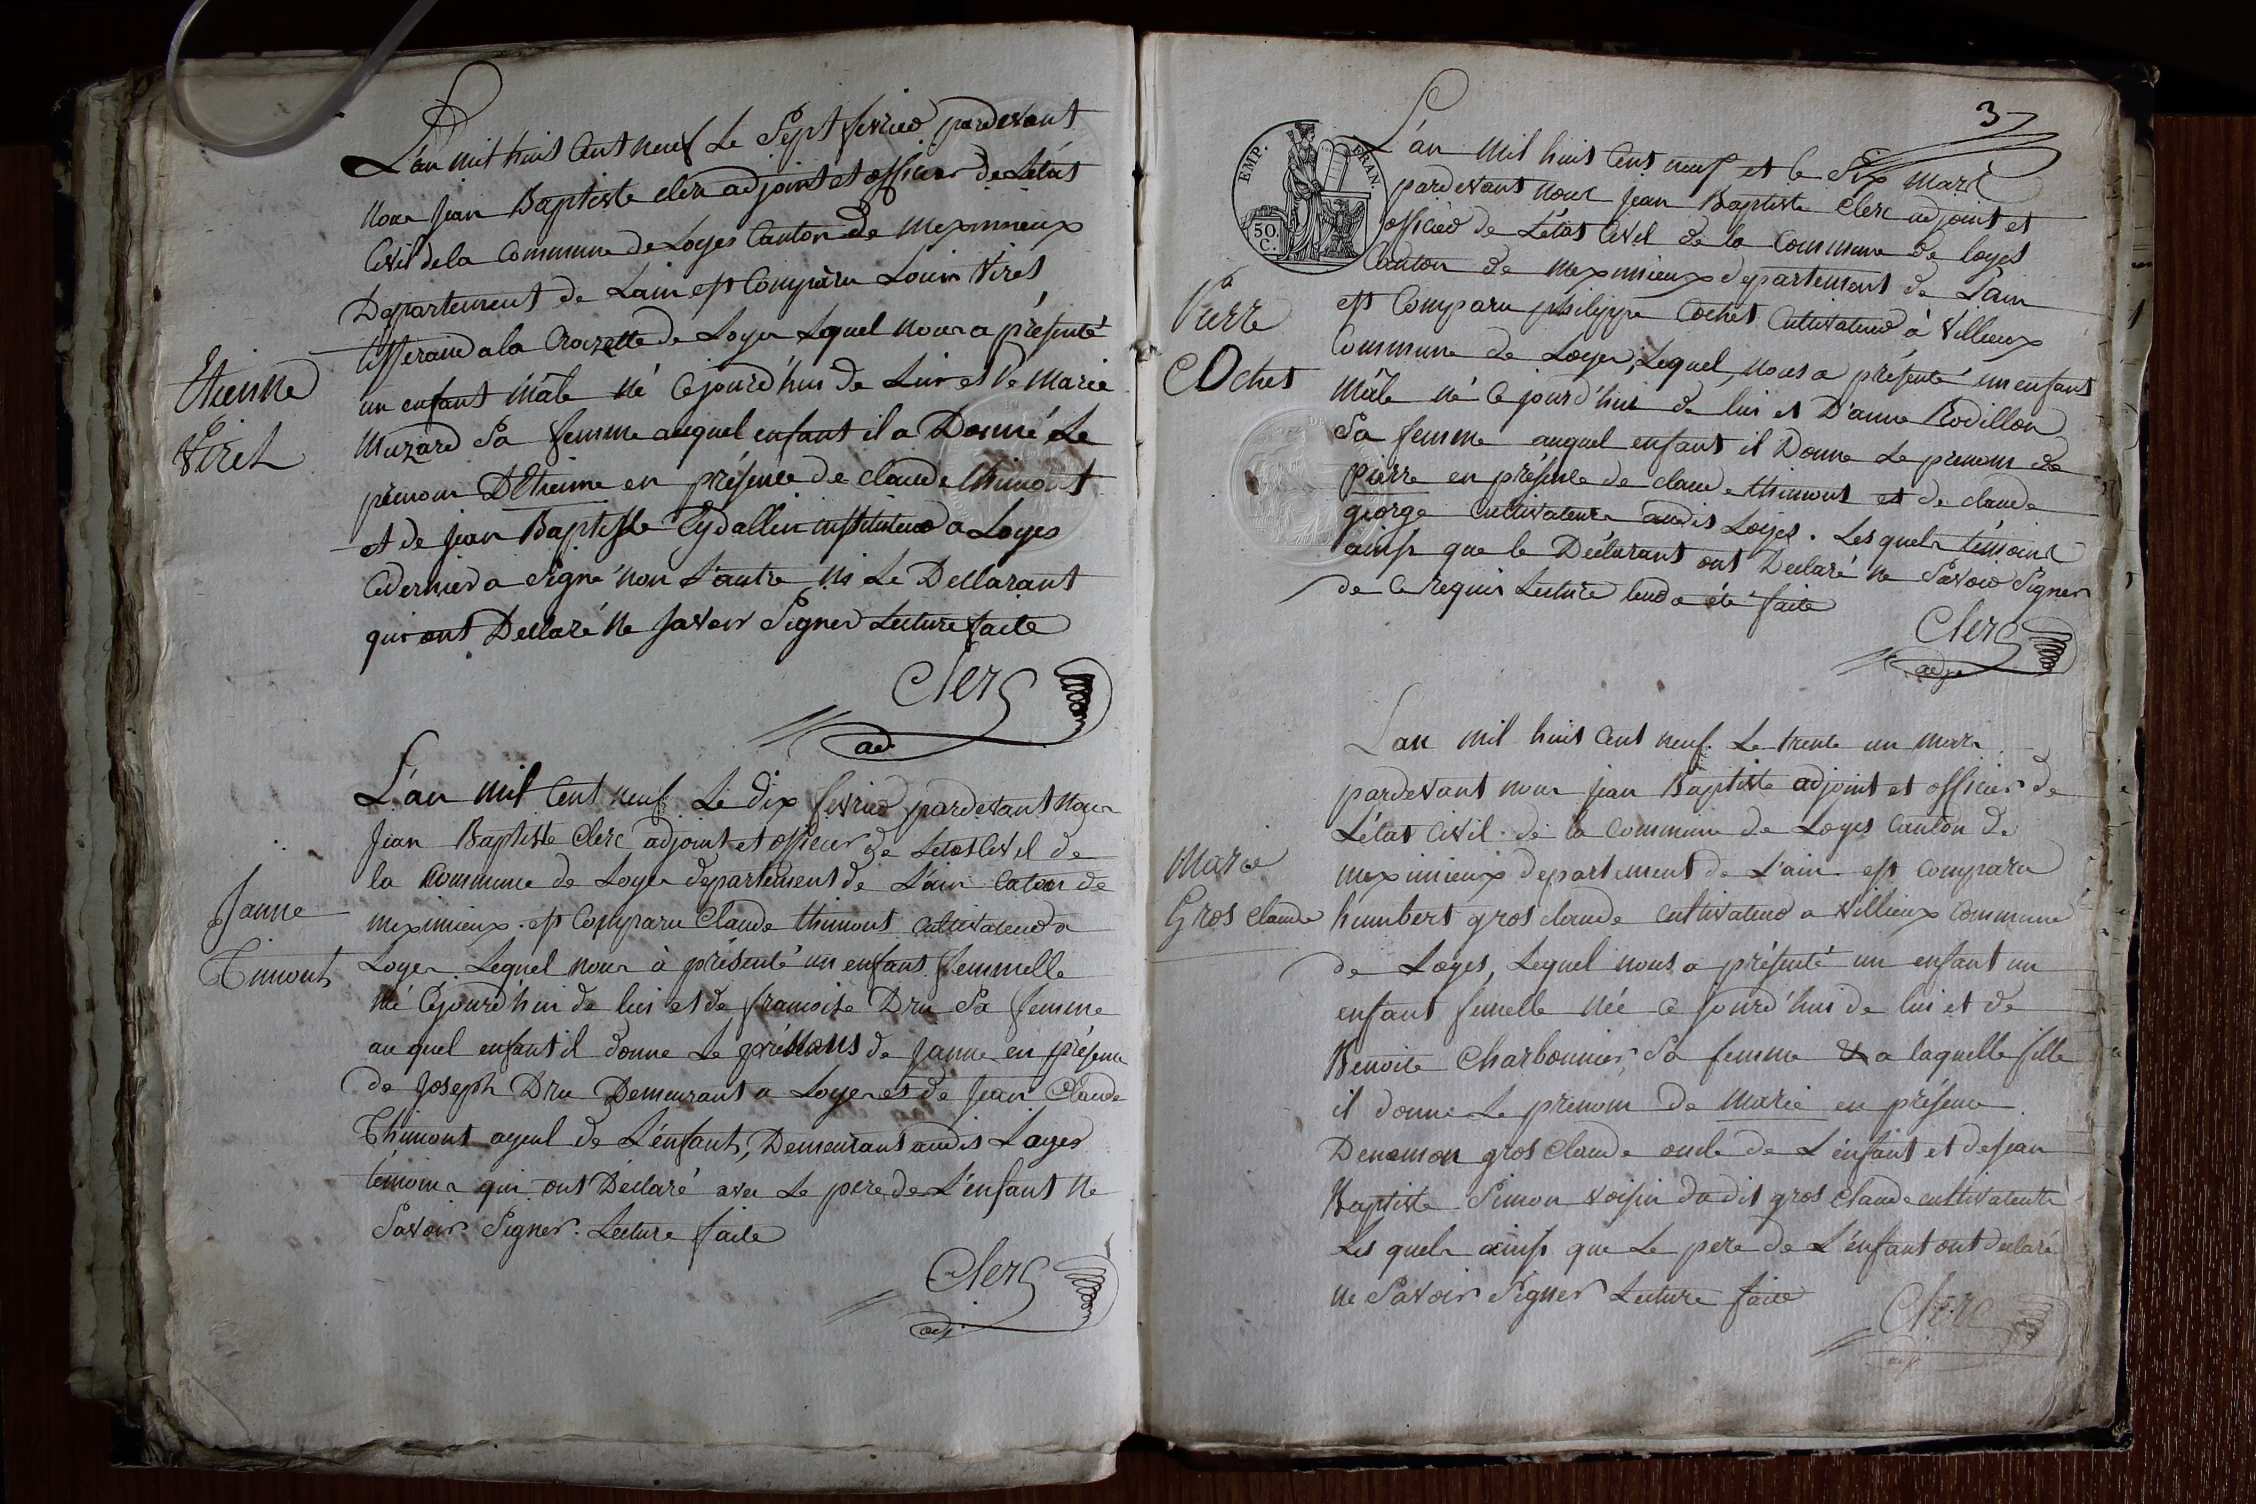 L'an mil huit Cent neuf Le Sept fevrier pardevant
nous Jean Baptiste clerc adjoint et officier de L'état
Civil de la Commune de Loyes Canton de Meximieux
Departement de Lain est Comparu Louis Viret
tisserand a la Croizette de Loyes Lequel nous a présenté
Etienne
Viret
un enfant mâle né Cejourd'hui de Lui et de Marie
Muzard Sa femme auquel enfant il a Donné Le
prénom D'Etienne en présence de claude thimont
et de Jean Baptiste Eydallin instituteur a Loyes
Cedernier a Signé non L'autre ni Le Déclarant
qui ont Declaré ne Savoir Signer Lecture faite
Clerc
adj
L'an mil Cent neuf Le dix fevrier pardevant nous
Jean Baptiste Clerc adjoint et officier de Letat Civil de
la Commune de Loyes departement de L'ain Caton de
Janne
Timont
meximieux est Comparu Claude thimont Cultivateur a
Loyes. Lequel nous à présenté un enfant femmelle
né Cejourd'hui de lui et de francoise Dru Sa femme
au quel enfant il donne Le prénoms de Janne en présence
de Joseph Dru Demeurant a Loyes et de Jean Claude
Thimont ayeul de L'enfant, Demeurant audit Loyes
témoins qui ont Déclaré avec Le pere de L'enfant ne
Savoir Signer. Lecture faite
Clerc
adj
3
EMP. FRAN.
50.
C.
L'an mil huit Cent neuf et le Six mars
pardevant nous Jean Baptiste Clerc adjoint et
officier de L'état Civil de la Commune de loyes
Canton de meximieux departement de L'ain
Pierre
COchet
est Comparu philippe Cochet Cultivateur à Villieux
Commune de Loyes, Lequel nous a présenté un enfant
Mâle né Ce jourd'hui de lui et D'anne Rodillon
Sa femme auquel enfant il Donne Le prenom de
pierre en présence de claude thimont et de claude
george Cultivateurs audit Loyes. Lesquels témoins
ainsi que le Déclarant ont Declaré ne Savoir Signer
de Ce requis Lecture leur a été faite
Clerc
adj
L'an mil huit Cent neuf. Le trente un mars
pardevant nous Jean Baptiste adjoint et officier de
L'état Civil de la Commune de Loyes Canton de
Marie
Gros claude
meximieux departement de L'ain est Comparu
humbert gros claude Cultivateur a Villieux Commune
de Loyes, Lequel nous a présenté un enfant un
enfant femelle née Ce jourd'hui de lui et de
Benoite Charbonnier, Sa femme & a laquelle fille
il donne Le prenom de marie en présence
Denemon gros Claude oncle de L'enfant et de Jean
Baptiste Simon voisin du dit gros Claude cultivateurs
Les quels ainsi que Le pere de L'enfant ont declaré
ne Savoir Signer Lecture faite
Clerc
adj